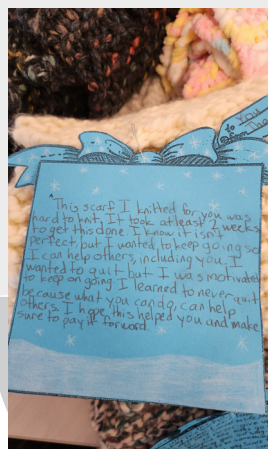 to you
This scarf I knitted for you was
hard to knit, It took at least 2 weeks
to get this done. I know it isn't
perfect but I wanted to keep going so
I can help others, including you, I
wanted to quit but I was motivated
to keep on going I learned to never quit
because what you can do, can help
others. I hope this helped you and make
sure to pay it forward.